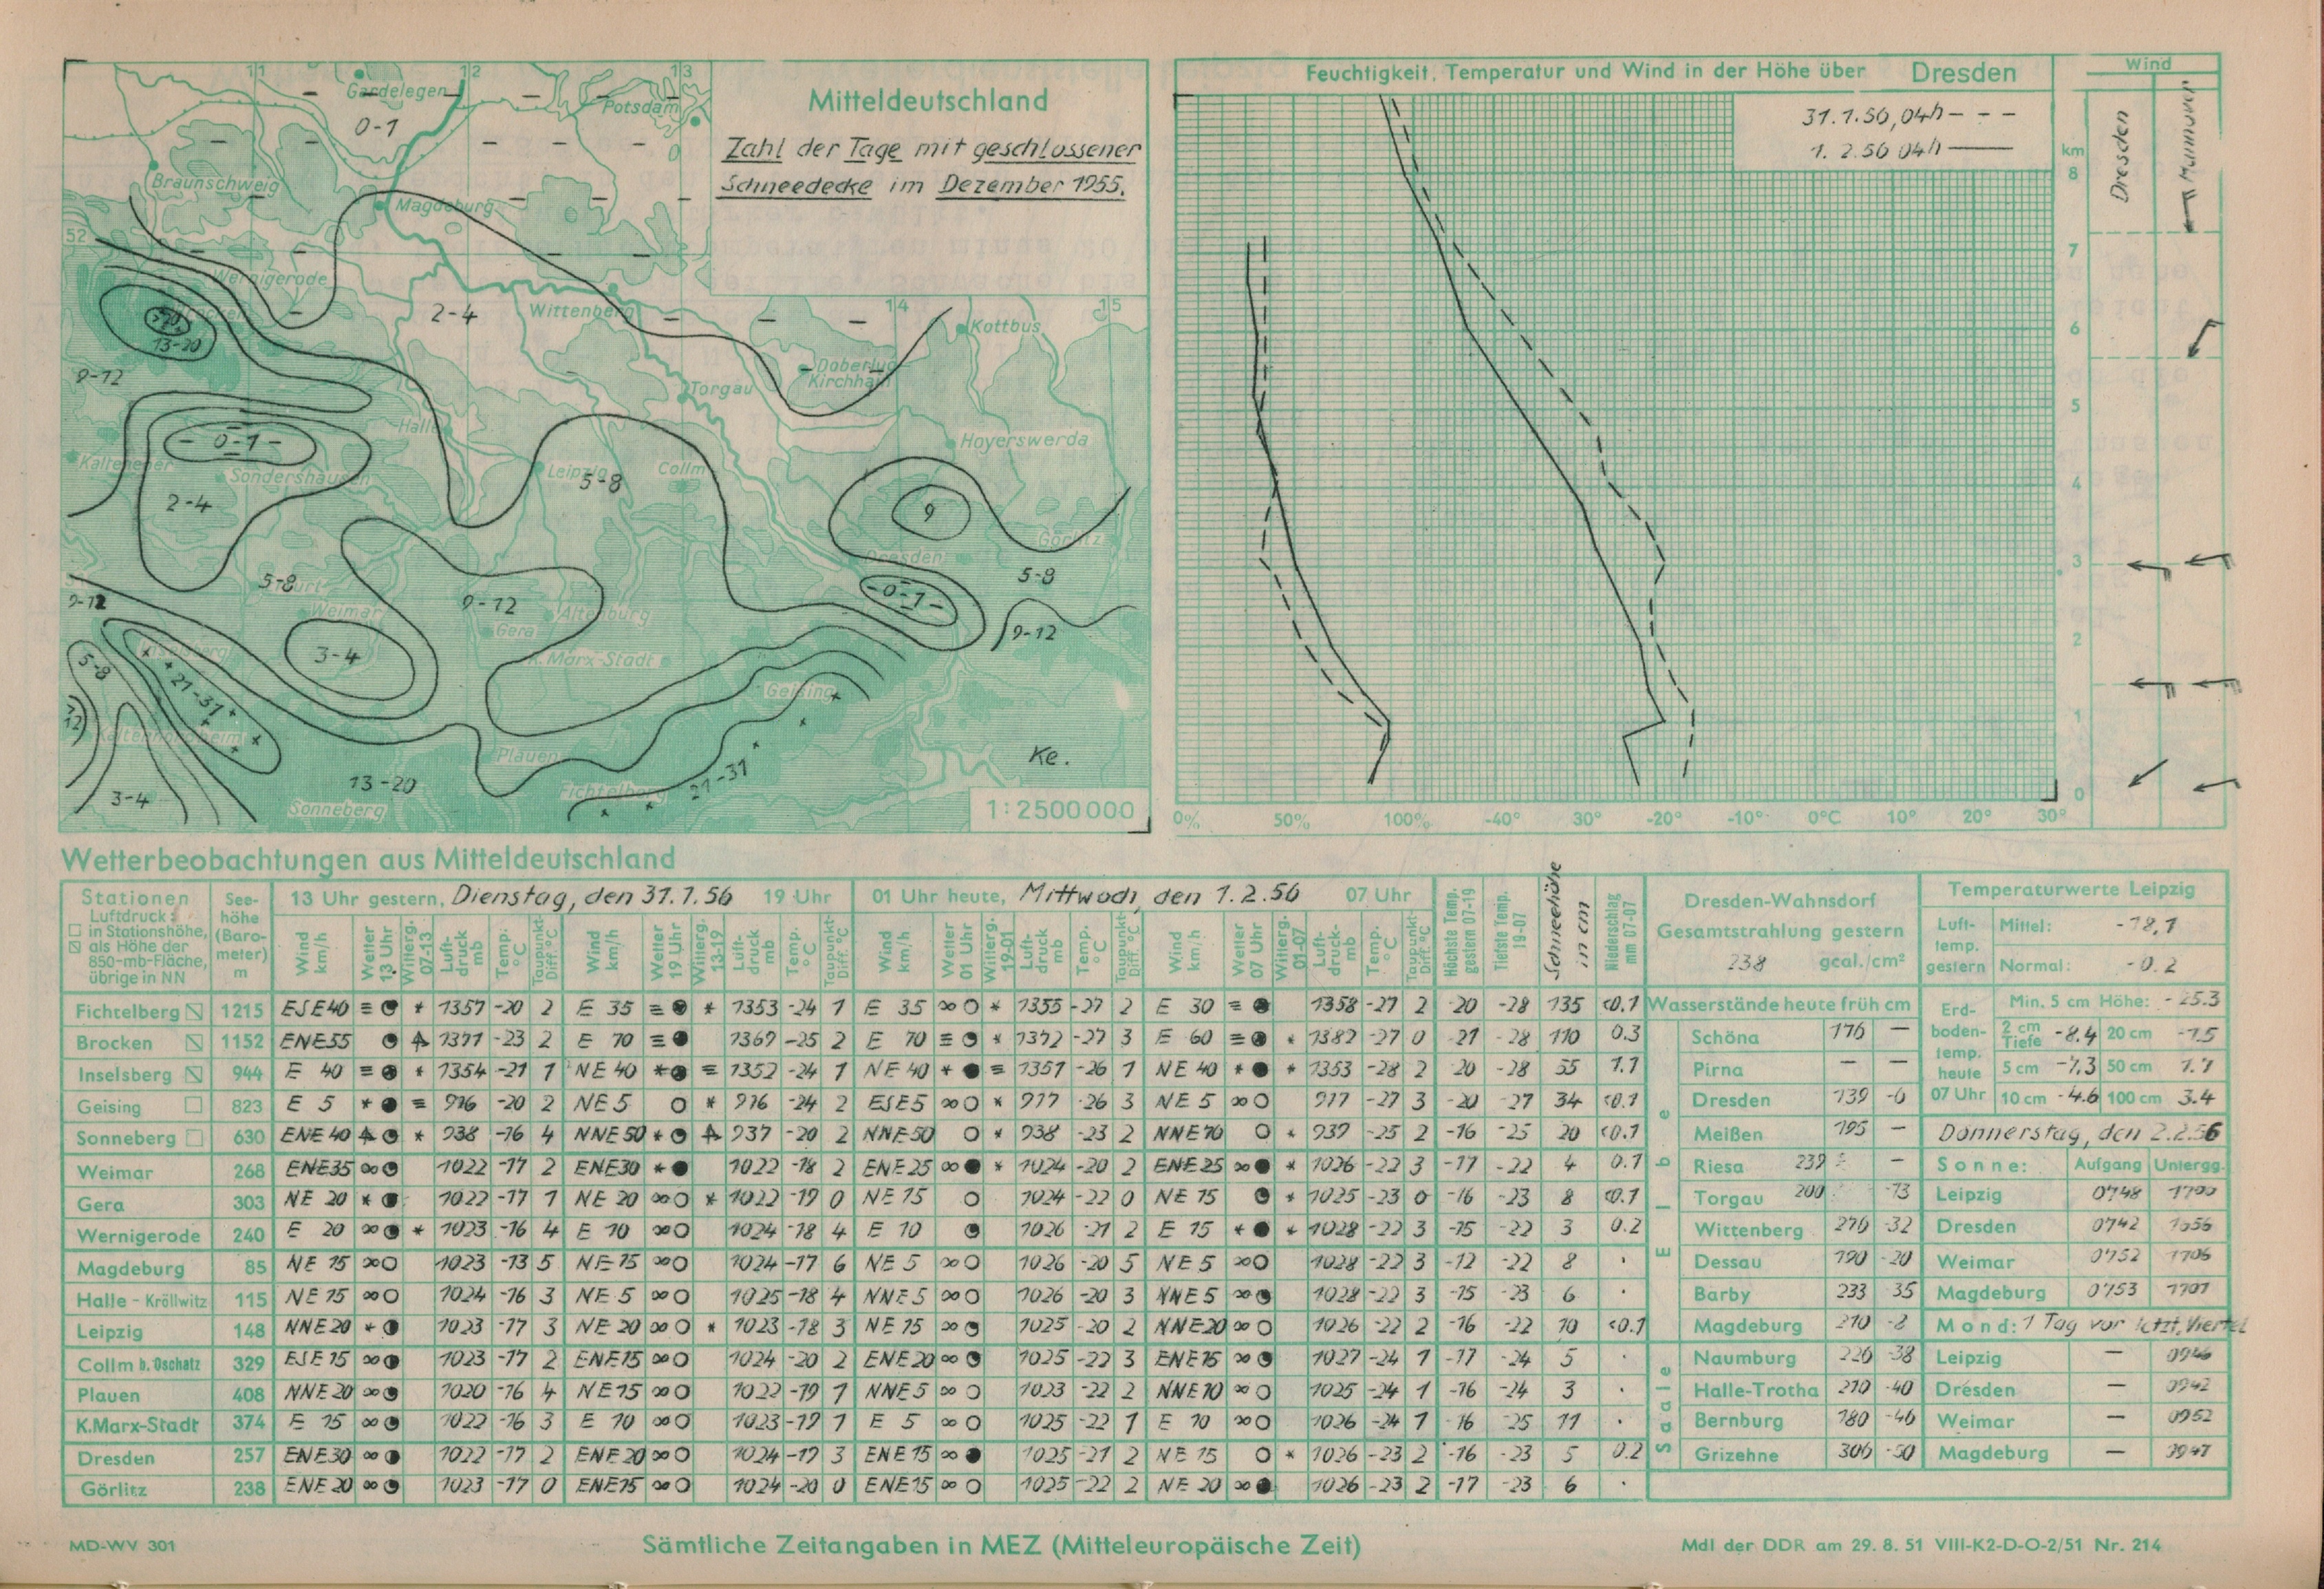 11 12 13
Gardelegen
Potsdam
0-1
Braunschweig
Magdeburg
52
Wernigerode
13-20
9-12
2-4
Wittenberg
14 15
Kottbus
Doberlug
Kirchhain
Torgau
Halle
Hoyerswerda
0-1
Sondershausen
Leipzig
Collm
5-8
2-4
9
Dresden
Görlitz
5-8
5-8
Weimar
9-12
9-12
Altenburg
Gera
0-1
9-12
3-4
K. Marx-Stadt
Geising
5-8
21-31
Plauen
13-20
Fichtelberg
21-31
3-4
Sonneberg
Ke.
1:2500000
Mitteldeutschland
Zahl der Tage mit geschlossener
Schneedecke im Dezember 1955.
Feuchtigkeit, Temperatur und Wind in der Höhe über Dresden
31.1.56, 04h - - -
1.2.56 04h ———
Wind
Dresden
Hannover
km
8
7
6
5
4
3
2
1
0
0% 50% 100% -40° 30° -20° -10° 0°C 10° 20° 30°
Wetterbeobachtungen aus Mitteldeutschland
Stationen
Luftdruck:
□ in Stationshöhe,
als Höhe der
850-mb-Fläche,
übrige in NN
See-
höhe
(Baro-
meter)
m
13 Uhr gestern, Dienstag, den 31.1.56 19 Uhr
01 Uhr heute, Mittwoch, den 1.2.56 07 Uhr
Wind km/h Wetter 13 Uhr Witterg. 07-13 Luft-druck mb Temp. °C Taupunkt-Diff. °C
Wind km/h Wetter 19 Uhr Witterg. 13-19 Luft-druck mb Temp. °C Taupunkt-Diff. °C
Wind km/h Wetter 01 Uhr Witterg. 19-01 Luft-druck mb Temp. °C Taupunkt-Diff. °C
Wind km/h Wetter 07 Uhr Witterg. 01-07 Luft-druck mb Temp. °C Taupunkt-Diff. °C
Höchste Temp. gestern 07-19
Tiefste Temp. 19-07
Schneehöhe in cm
Niederschlag mm 07-07
Fichtelberg 1215 ESE 40 1357 -20 2 E 35 1353 -24 1 E 35 1355 -27 2 E 30 1358 -27 2 -20 -28 135 <0.1
Brocken 1152 ENE 55 1371 -23 2 E 70 1369 -25 2 E 70 1372 -27 3 E 60 1382 -27 0 -21 -28 110 0.3
Inselsberg 944 E 40 1354 -21 1 NE 40 1352 -24 1 NE 40 1351 -26 1 NE 40 1353 -28 2 -20 -28 55 1.1
Geising □ 823 E 5 916 -20 2 NE 5 916 -24 2 ESE 5 917 -26 3 NE 5 917 -27 3 -20 -27 34 <0.1
Sonneberg □ 630 ENE 40 938 -16 4 NNE 50 937 -20 2 NNE 50 938 -23 2 NNE 70 939 -25 2 -16 -25 20 <0.1
Weimar 268 ENE 35 1022 -17 2 ENE 30 1022 -18 2 ENE 25 1024 -20 2 ENE 25 1026 -22 3 -17 -22 4 0.1
Gera 303 NE 20 1022 -17 1 NE 20 1022 -19 0 NE 15 1024 -22 0 NE 15 1025 -23 0 -16 -23 8 <0.1
Wernigerode 240 E 20 1023 -16 4 E 10 1024 -18 4 E 10 1026 -21 2 E 15 1028 -22 3 -15 -22 3 0.2
Magdeburg 85 NE 15 1023 -13 5 NE 15 1024 -17 6 NE 5 1026 -20 5 NE 5 1028 -22 3 -12 -22 8 .
Halle-Kröllwitz 115 NE 15 1024 -16 3 NE 5 1025 -18 4 NNE 5 1026 -20 3 NNE 5 1028 -22 3 -15 -23 6 .
Leipzig 148 NNE 20 1023 -17 3 NE 20 1023 -18 3 NE 15 1025 -20 2 NNE 20 1026 -22 2 -16 -22 10 <0.1
Collm b. Oschatz 329 ESE 15 1023 -17 2 ENE 15 1024 -20 2 ENE 20 1025 -22 3 ENE 15 1027 -24 1 -17 -24 5 .
Plauen 408 NNE 20 1020 -16 4 NE 15 1022 -19 1 NNE 5 1023 -22 2 NNE 10 1025 -24 1 -16 -24 3 .
K.Marx-Stadt 374 E 15 1022 -16 3 E 10 1023 -19 1 E 5 1025 -22 1 E 10 1026 -24 1 -16 -25 11 .
Dresden 257 ENE 30 1022 -17 2 ENE 20 1024 -19 3 ENE 15 1025 -21 2 NE 15 1026 -23 2 -16 -23 5 0.2
Görlitz 238 ENE 20 1023 -17 0 ENE 15 1024 -20 0 ENE 15 1025 -22 2 NE 20 1026 -23 2 -17 -23 6 .
Dresden-Wahnsdorf
Gesamtstrahlung gestern
238 gcal./cm²
Wasserstände heute früh cm
Elbe
Schöna 176 —
Pirna — —
Dresden 139 -6
Meißen 195 —
Riesa 239 —
Torgau 200 -13
Wittenberg 276 -32
Dessau 190 -20
Barby 233 35
Magdeburg 210 -8
Saale
Naumburg 226 -38
Halle-Trotha 210 -40
Bernburg 180 -46
Grizehne 306 -50
Temperaturwerte Leipzig
Luft-
temp.
gestern
Mittel: -18,1
Normal: -0.2
Erd-
boden-
temp.
heute
07 Uhr
Min. 5 cm Höhe: -25.3
2 cm Tiefe -8.4 20 cm -1.5
5 cm -7.3 50 cm 1.7
10 cm -4.6 100 cm 3.4
Donnerstag, den 2.2.56
Sonne: Aufgang Untergg.
Leipzig 0748 1700
Dresden 0742 1656
Weimar 0752 1706
Magdeburg 0753 1701
Mond: 1 Tag vor letzt. Viertel
Leipzig —
Dresden — 0942
Weimar — 0952
Magdeburg —
MD-WV 301
Sämtliche Zeitangaben in MEZ (Mitteleuropäische Zeit)
MdI der DDR am 29. 8. 51 VIII-K2-D-O-2/51 Nr. 214